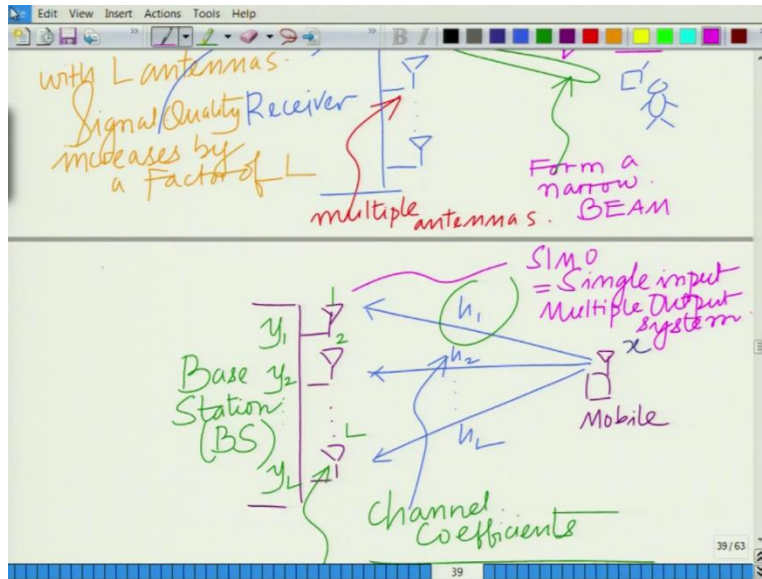 Edit View Insert Actions Tools Help
with L antennas.
Signal Quality
increases by
a Factor of L
Receiver
multiple antennas.
Form a
narrow
BEAM
SIMO
= Single input
Multiple Output
system
1
y1
2
Base y2
Station
(BS)
L
yL
h1
h2
hL
x
Mobile
Channel
Coefficients
39/63
39